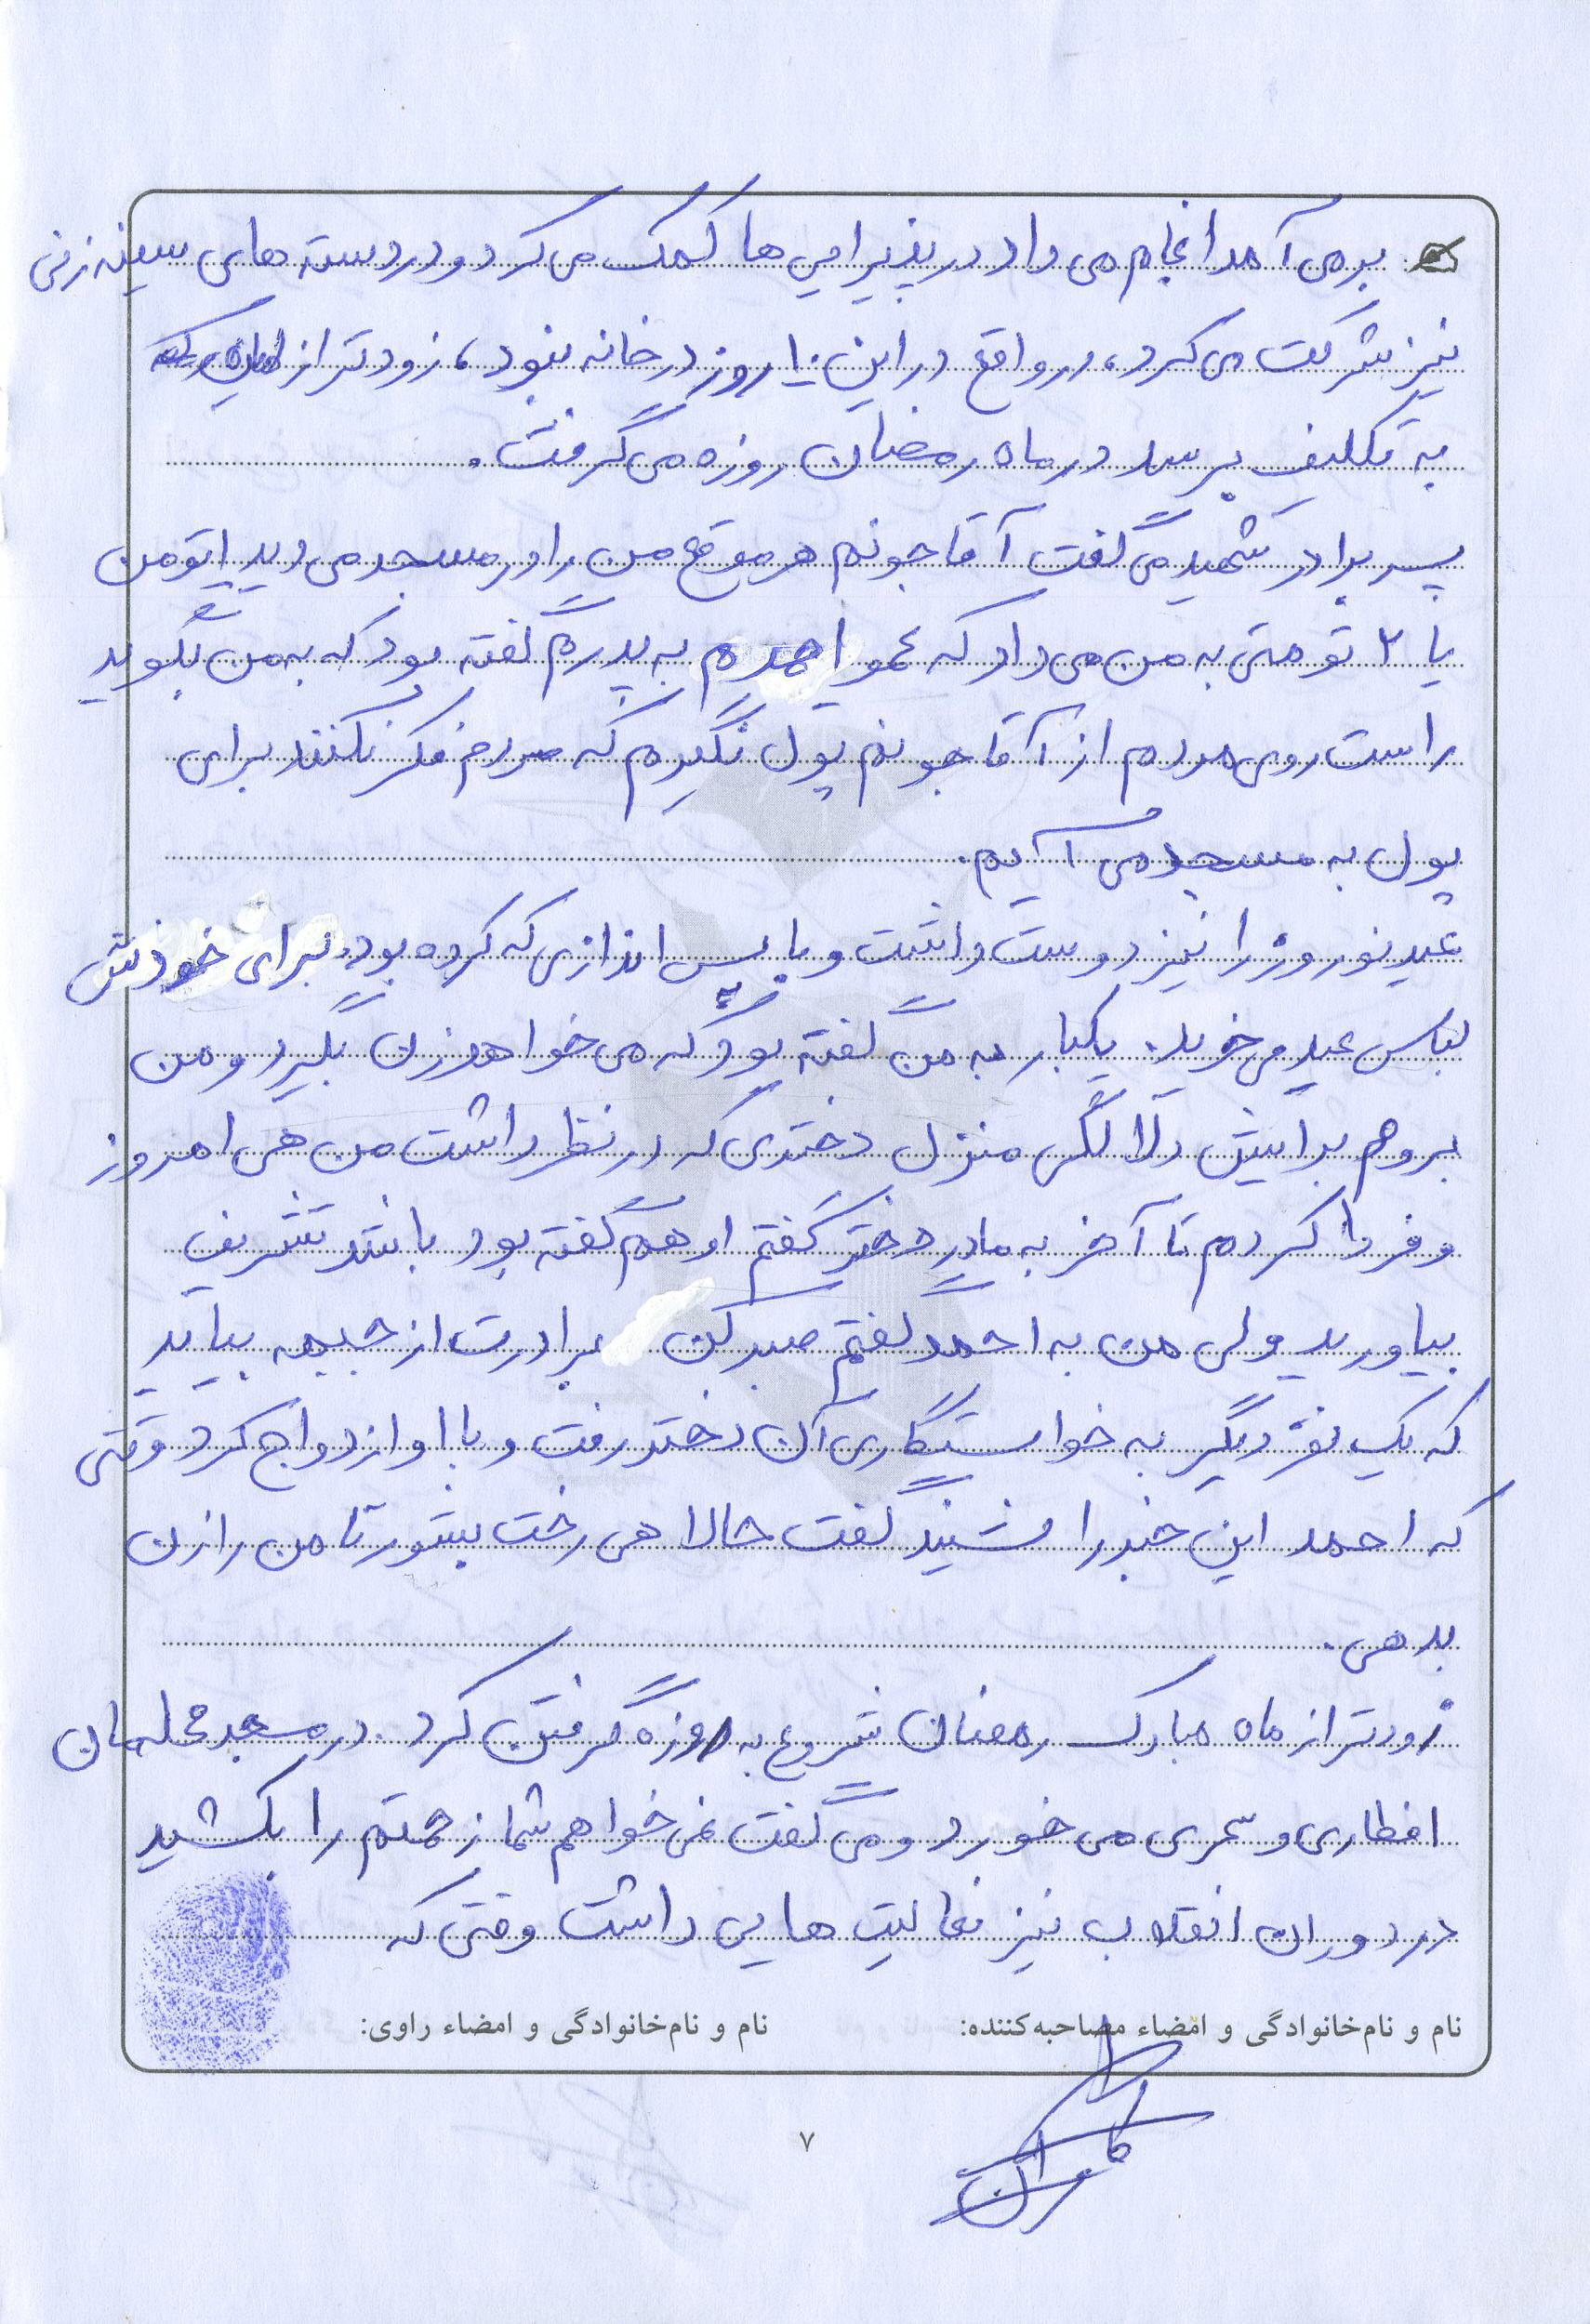 برمی آمد انجام می داد در پذیرایی ها کمک می کرد و در دسته های سینه زنی
نیز شرکت می کرد، در واقع در این ۱۰ روز در خانه نبود، زودتر از این که
به تکلیف برسد در ماه رمضان روزه می گرفت.
پسر برادر شهید می گفت آقاجونم هر موقع من را در مسجد می دید ایتومن
یا ۲ تومنی به من می داد که عمو احمدم به پدرم گفته بود که به من بگوید
راست روی مردم از آقاجونم پول نگیرم که مردم فکر نکنند برای
پول به مسجد می آیم.
عید نوروز را نیز دوست داشت و با پس اندازی که کرده بود برای خودش
لباس عید می خرید. یکبار به من گفته بود که می خواهد زن بگیرد و من
بروم برایش دلالگی منزل دختری که در نظر داشت من هی امروز
و فردا کردم تا آخر به مادر دختر گفتم او هم گفته بود باشد تشریف
بیاورید ولی من به احمد گفتم صبر کن برادرت از جبهه بیاید
که یک نفر دیگر به خواستگاری آن دختر رفت و با او ازدواج کرد وقتی
که احمد این خبر را شنید گفت حالا هی رخت بشور تا من را زن
بدهی.
زودتر از ماه مبارک رمضان شروع به روزه گرفتن کرد. در مسجد محله مان
افطاری و سحری می خورد و می گفت نمی خواهم شما زحمتم را بکشید
در دوران انقلاب نیز فعالیت هایی داشت وقتی که
نام و نام‌خانوادگی و امضاء مصاحبه‌کننده: نام و نام‌خانوادگی و امضاء راوی:
۷